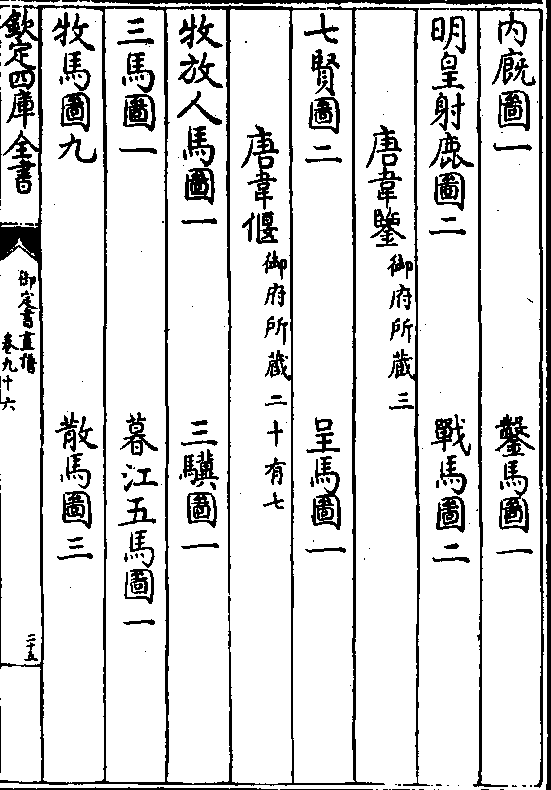 内廐圖一　鑿馬圖一
明皇射鹿圖二　戰馬圖二
唐韋鑒御府所藏三
七賢圖二　呈馬圖一
唐韋偃御府所藏二十有七
牧放人馬圖一　三驥圖一
三馬圖一　暮江五馬圖一
牧馬圖九　散馬圖三
欽定四庫全書
御定書畫譜
卷九十六
二十五